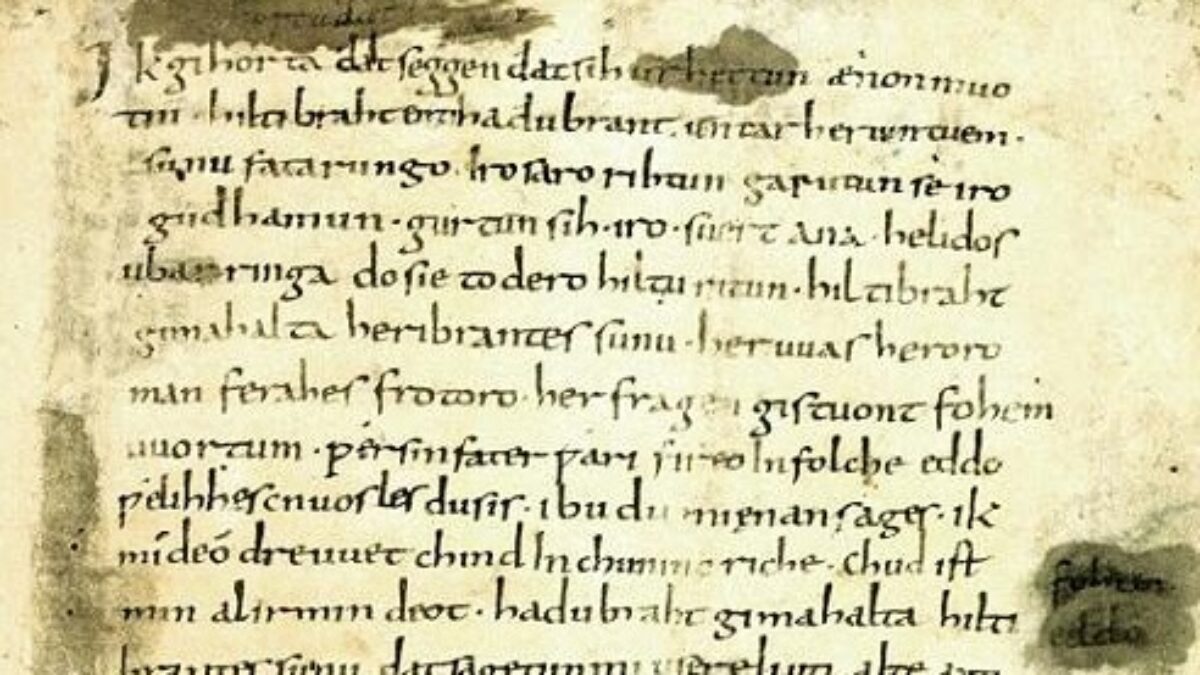 Ik gihorta dat seggen dat sih urhettun ænon muo
tin · hiltibraht enti hadubrant · untar heriun tuem ·
sunu fatarungo · iro saro rihtun garutun se iro
gudhamun · gurtun sih · iro · suert ana · helidos
ubar ringa do sie to dero hiltu ritun · hiltibraht
gimahalta heribrantes sunu · her uuas heroro
man ferahes frotoro · her fragen gistuont fohem
uuortum · ƿer sin fater ƿari fireo In folche eddo
ƿelihhes cnuosles du sis · ibu du mi ęnan sages · ik
mi deó dre uuet chind In chunincriche · Chud ist
min al irmin deot · hadubraht gimahalta hilti
brantes sunu dat sagetun mi usere liuti alte anti
fohem
eddo